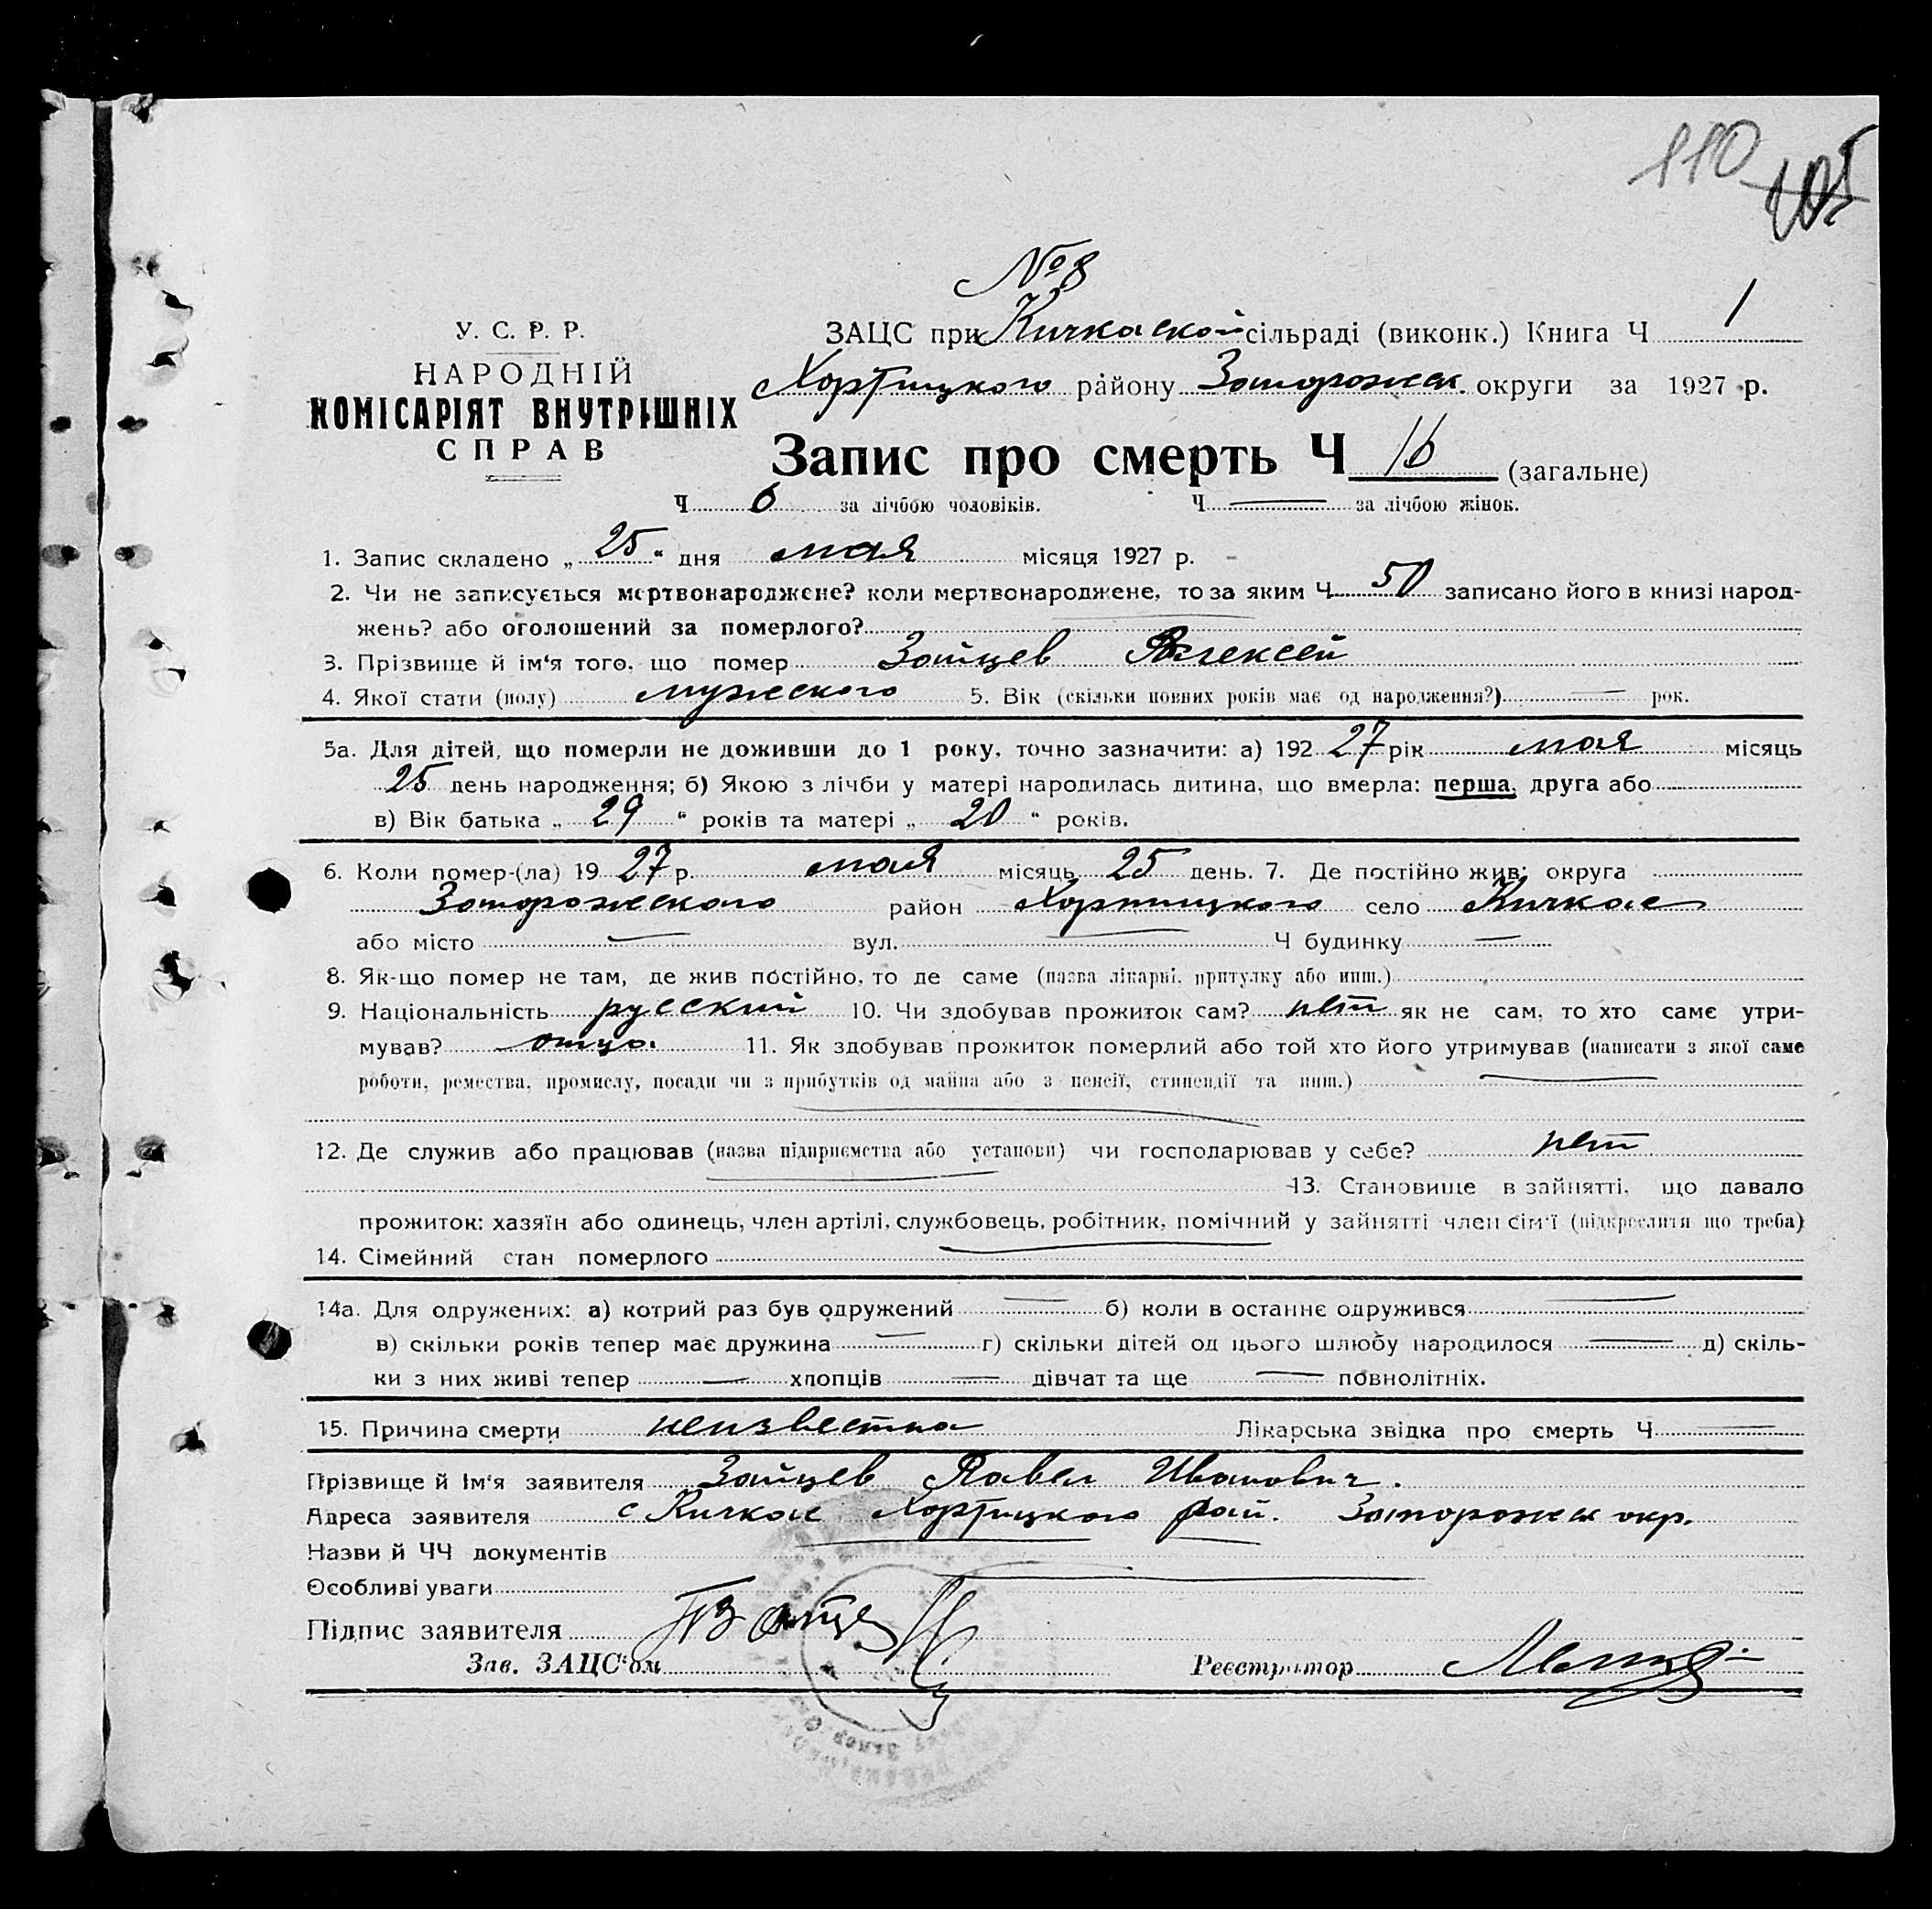 110 105
№ 8
У. С. Р. Р.
НАРОДНІЙ
КОМІСАРІЯТ ВНУТРІШНІХ
СПРАВ
ЗАЦС при Кичкаской сільраді (виконк.) Книга Ч 1
Хортицкого району Запорожск. округи за 1927 р.
Запис про смерть Ч 16 (загальне)
Ч 6 за лічбою чоловіків. Ч — за лічбою жінок.
1. Запис складено „ 25 “ дня мая місяця 1927 р.
2. Чи не записується мертвонароджене? коли мертвонароджене, то за яким Ч 50 записано його в книзі народ-
жень? або оголошений за померлого?
3. Прізвище й ім‘я того, що помер Зайцев Алексей
4. Якої стати (полу) мужеского 5. Вік (скільки повних років має од народження?) — рок.
5а. Для дітей, що померли не доживши до 1 року, точно зазначити: а) 192 27 рік мая місяць
25 день народження; б) Якою з лічби у матері народилась дитина, що вмерла: перша, друга або
в) Вік батька „ 29 “ років та матері „ 20 “ років.
6. Коли помер-(ла) 19 27 р. мая місяць 25 день. 7. Де постійно жив: округа
Запорожского район Хортицкого село Кичкас
або місто — вул. — Ч будинку —
8. Як-що помер не там, де жив постійно, то де саме (назва лікарні, притулку або инш.)
9. Національність русский 10. Чи здобував прожиток сам? нет як не сам, то хто саме утри-
мував? отца. 11. Як здобував прожиток померлий або той хто його утримував (написати з якої саме
роботи, ремества, промислу, посади чи з прибутків од майна або з пенсії, стипендії та инш.) —
12. Де служив або працював (назва підприємства або установи) чи господарював у себе? нет
13. Становище в зайнятті, що давало
прожиток: хазяїн або одинець, член артілі, службовець, робітник, помічний у зайнятті член сім‘ї (підкреслити що треба)
14. Сімейний стан померлого —
14а. Для одружених: а) котрий раз був одружений — б) коли в останнє одружився —
в) скільки років тепер має дружина — г) скільки дітей од цього шлюбу народилося — д) скіль-
ки з них живі тепер — хлопців — дівчат та ще — повнолітніх.
15. Причина смерти неизвестна Лікарська звідка про смерть Ч —
Прізвище й ім‘я заявителя Зайцев Павел Иванович.
Адреса заявителя с Кичкас Хортицкого рай. Запорожск окр.
Назви й ЧЧ документів —
Особливі уваги —
Підпис заявителя ПЗайце
Зав. ЗАЦС‘ом Реєстратор